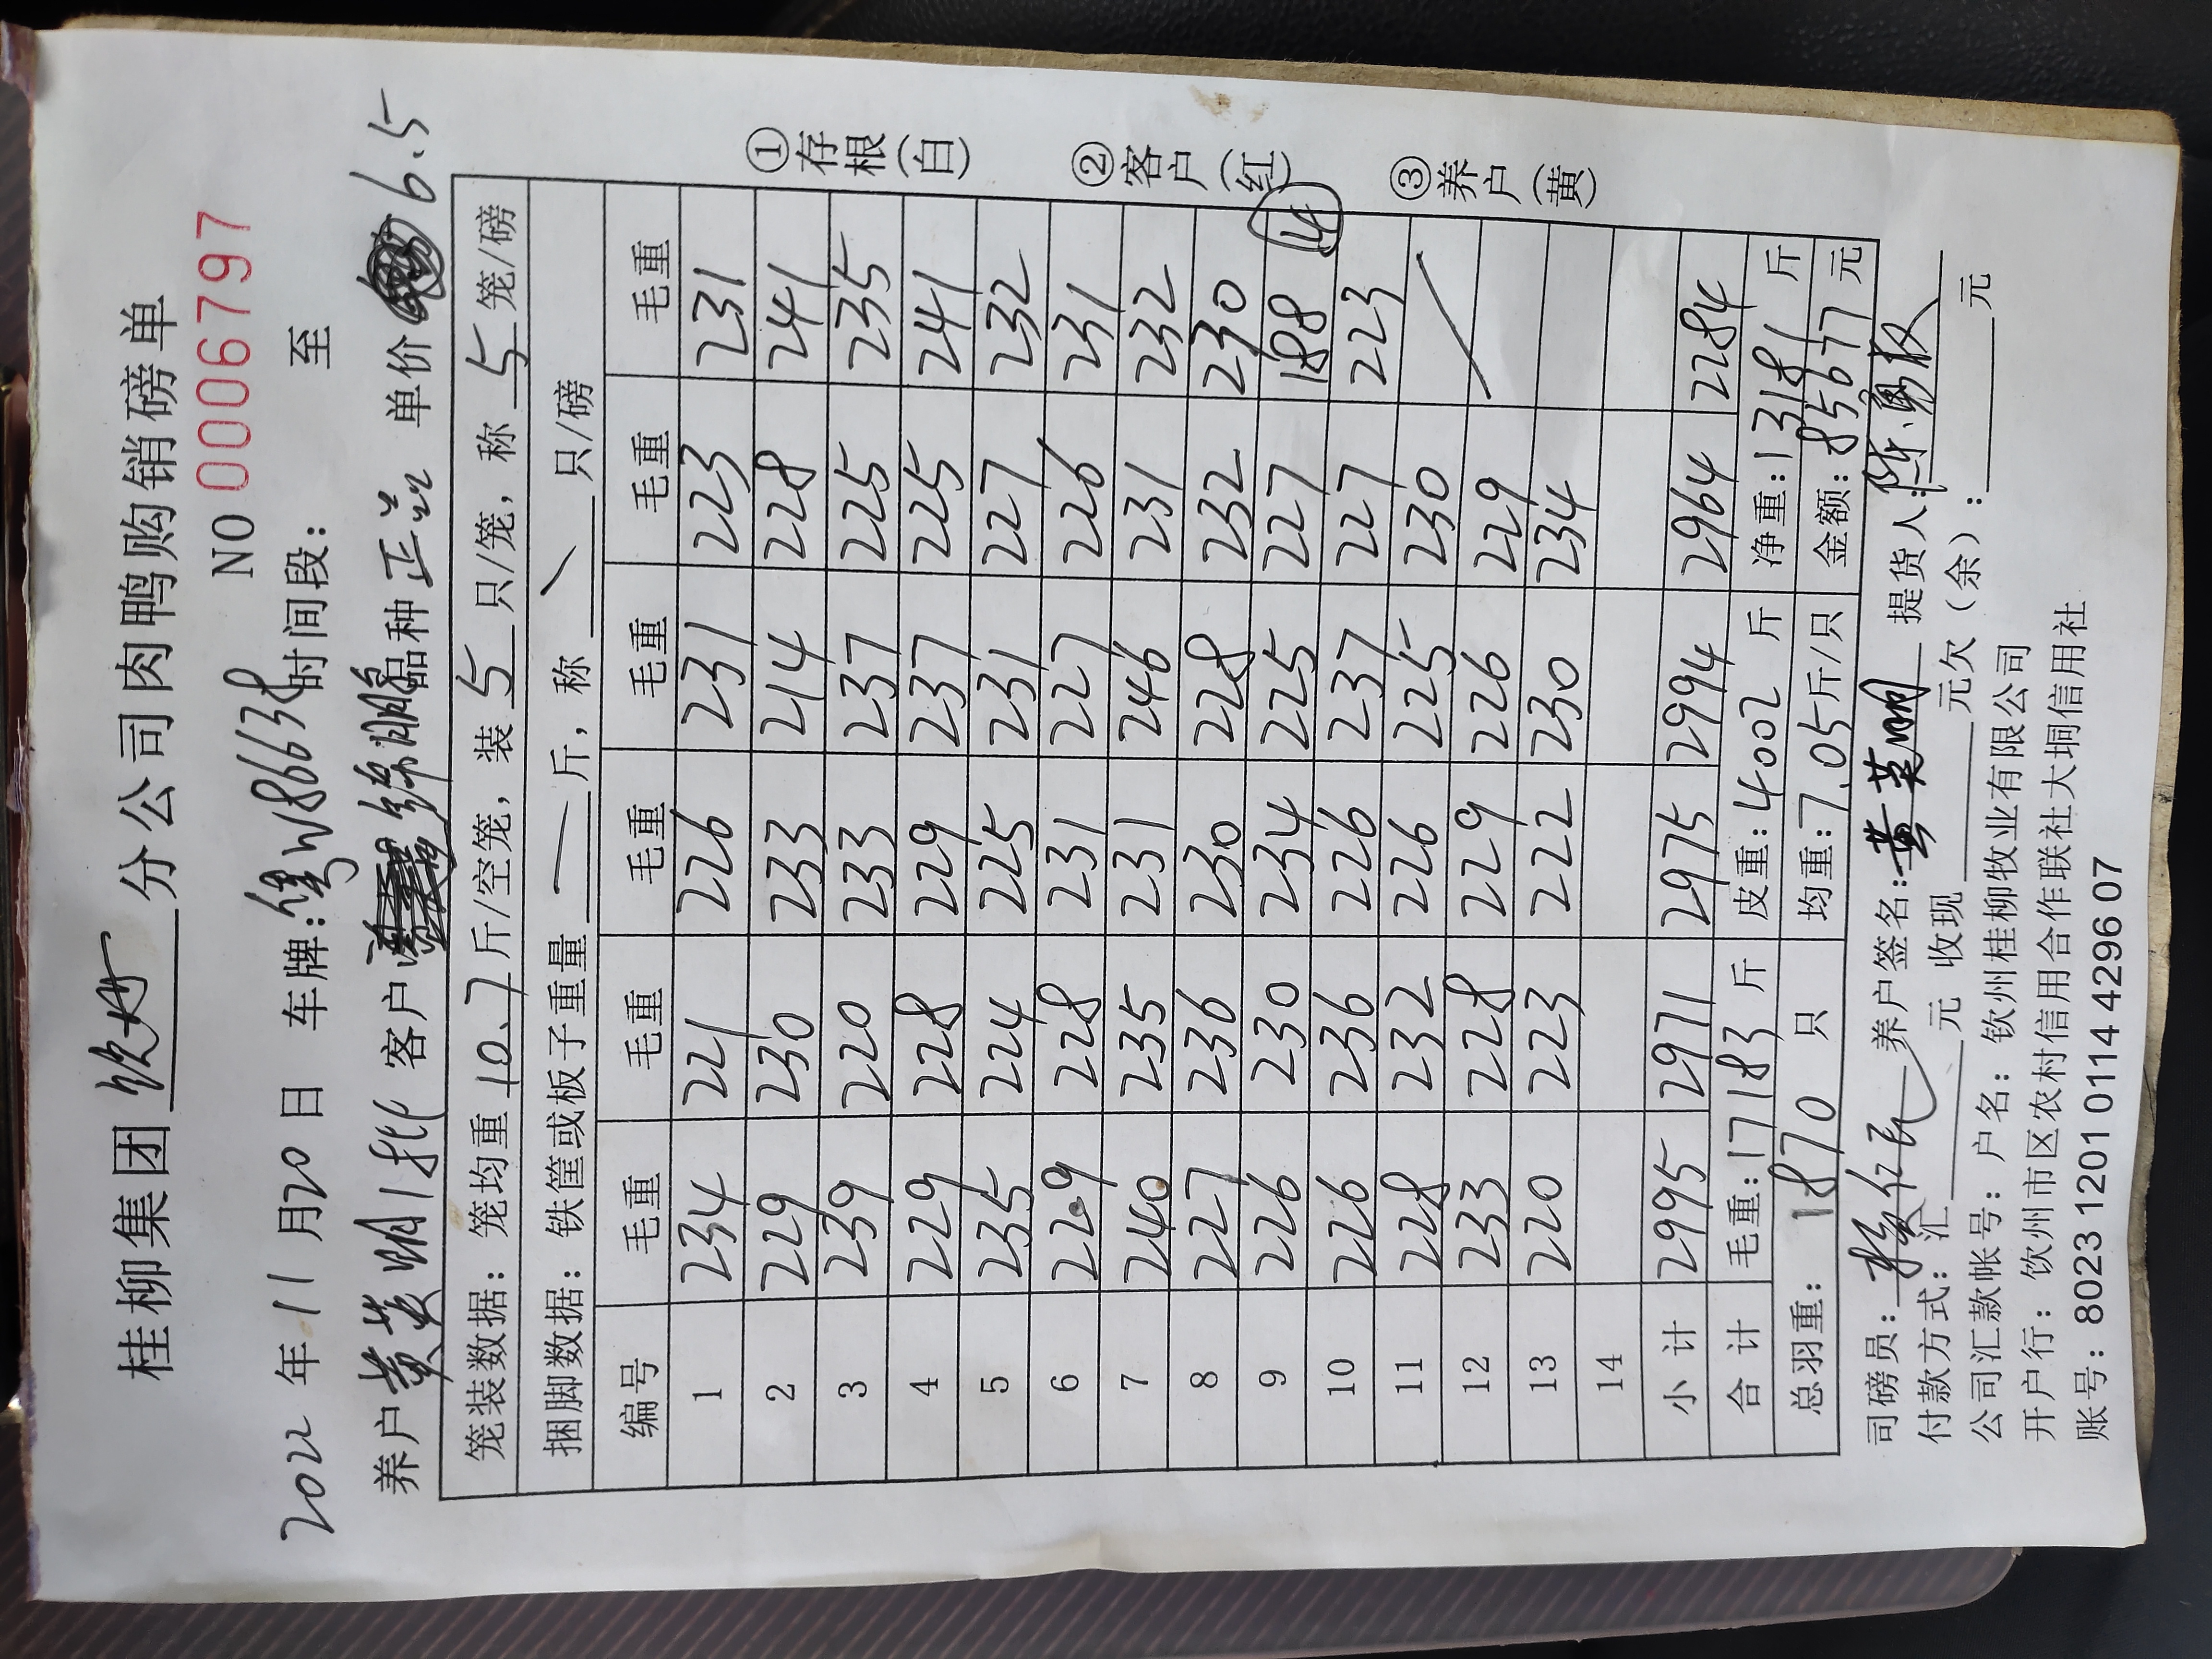 桂柳集团 钦州 分公司肉鸭购销磅单
NO 0006797
2022 年 11 月 20 日 车牌: W86638 时间段: 至
养户 黄英明1批 客户 鹏 品种 正品 单价 6.5
笼装数据: 笼均重 10.7 斤/空笼, 装 5 只/笼, 称 5 笼/磅
捆脚数据: 铁筐或板子重量 — 斤, 称 \ 只/磅
编号 毛重 毛重 毛重 毛重 毛重 毛重
1 234 221 226 231 223 231
2 229 230 233 214 228 241
3 239 220 233 237 225 235
4 229 228 229 237 225 241
5 235 224 225 231 227 232
6 229 228 231 227 226 231
7 240 235 231 246 231 232
8 227 236 230 228 232 230
9 226 230 234 225 227 188 14
10 226 236 226 237 227 223
11 228 232 226 225 230
12 233 228 229 226 229
13 220 223 222 230 234
14
小计 2995 2971 2975 2994 2964 2284
合计 毛重: 17183 斤 皮重: 4002 斤 净重: 13181 斤
总羽重: 1870 只 均重: 7.05 斤/只 金额: 85677 元
司磅员: 养户签名: 黄英明 提货人:
付款方式: 汇 元 收现 元欠(余): 元
公司汇款帐号: 户名: 钦州桂柳牧业有限公司
开户行: 钦州市区农村信用合作联社大垌信用社
账号: 8023 1201 0114 4296 07
①存根(白)
②客户(红)
③养户(黄)